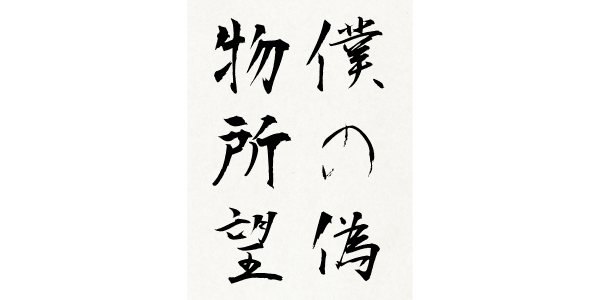 僕の偽
物所望